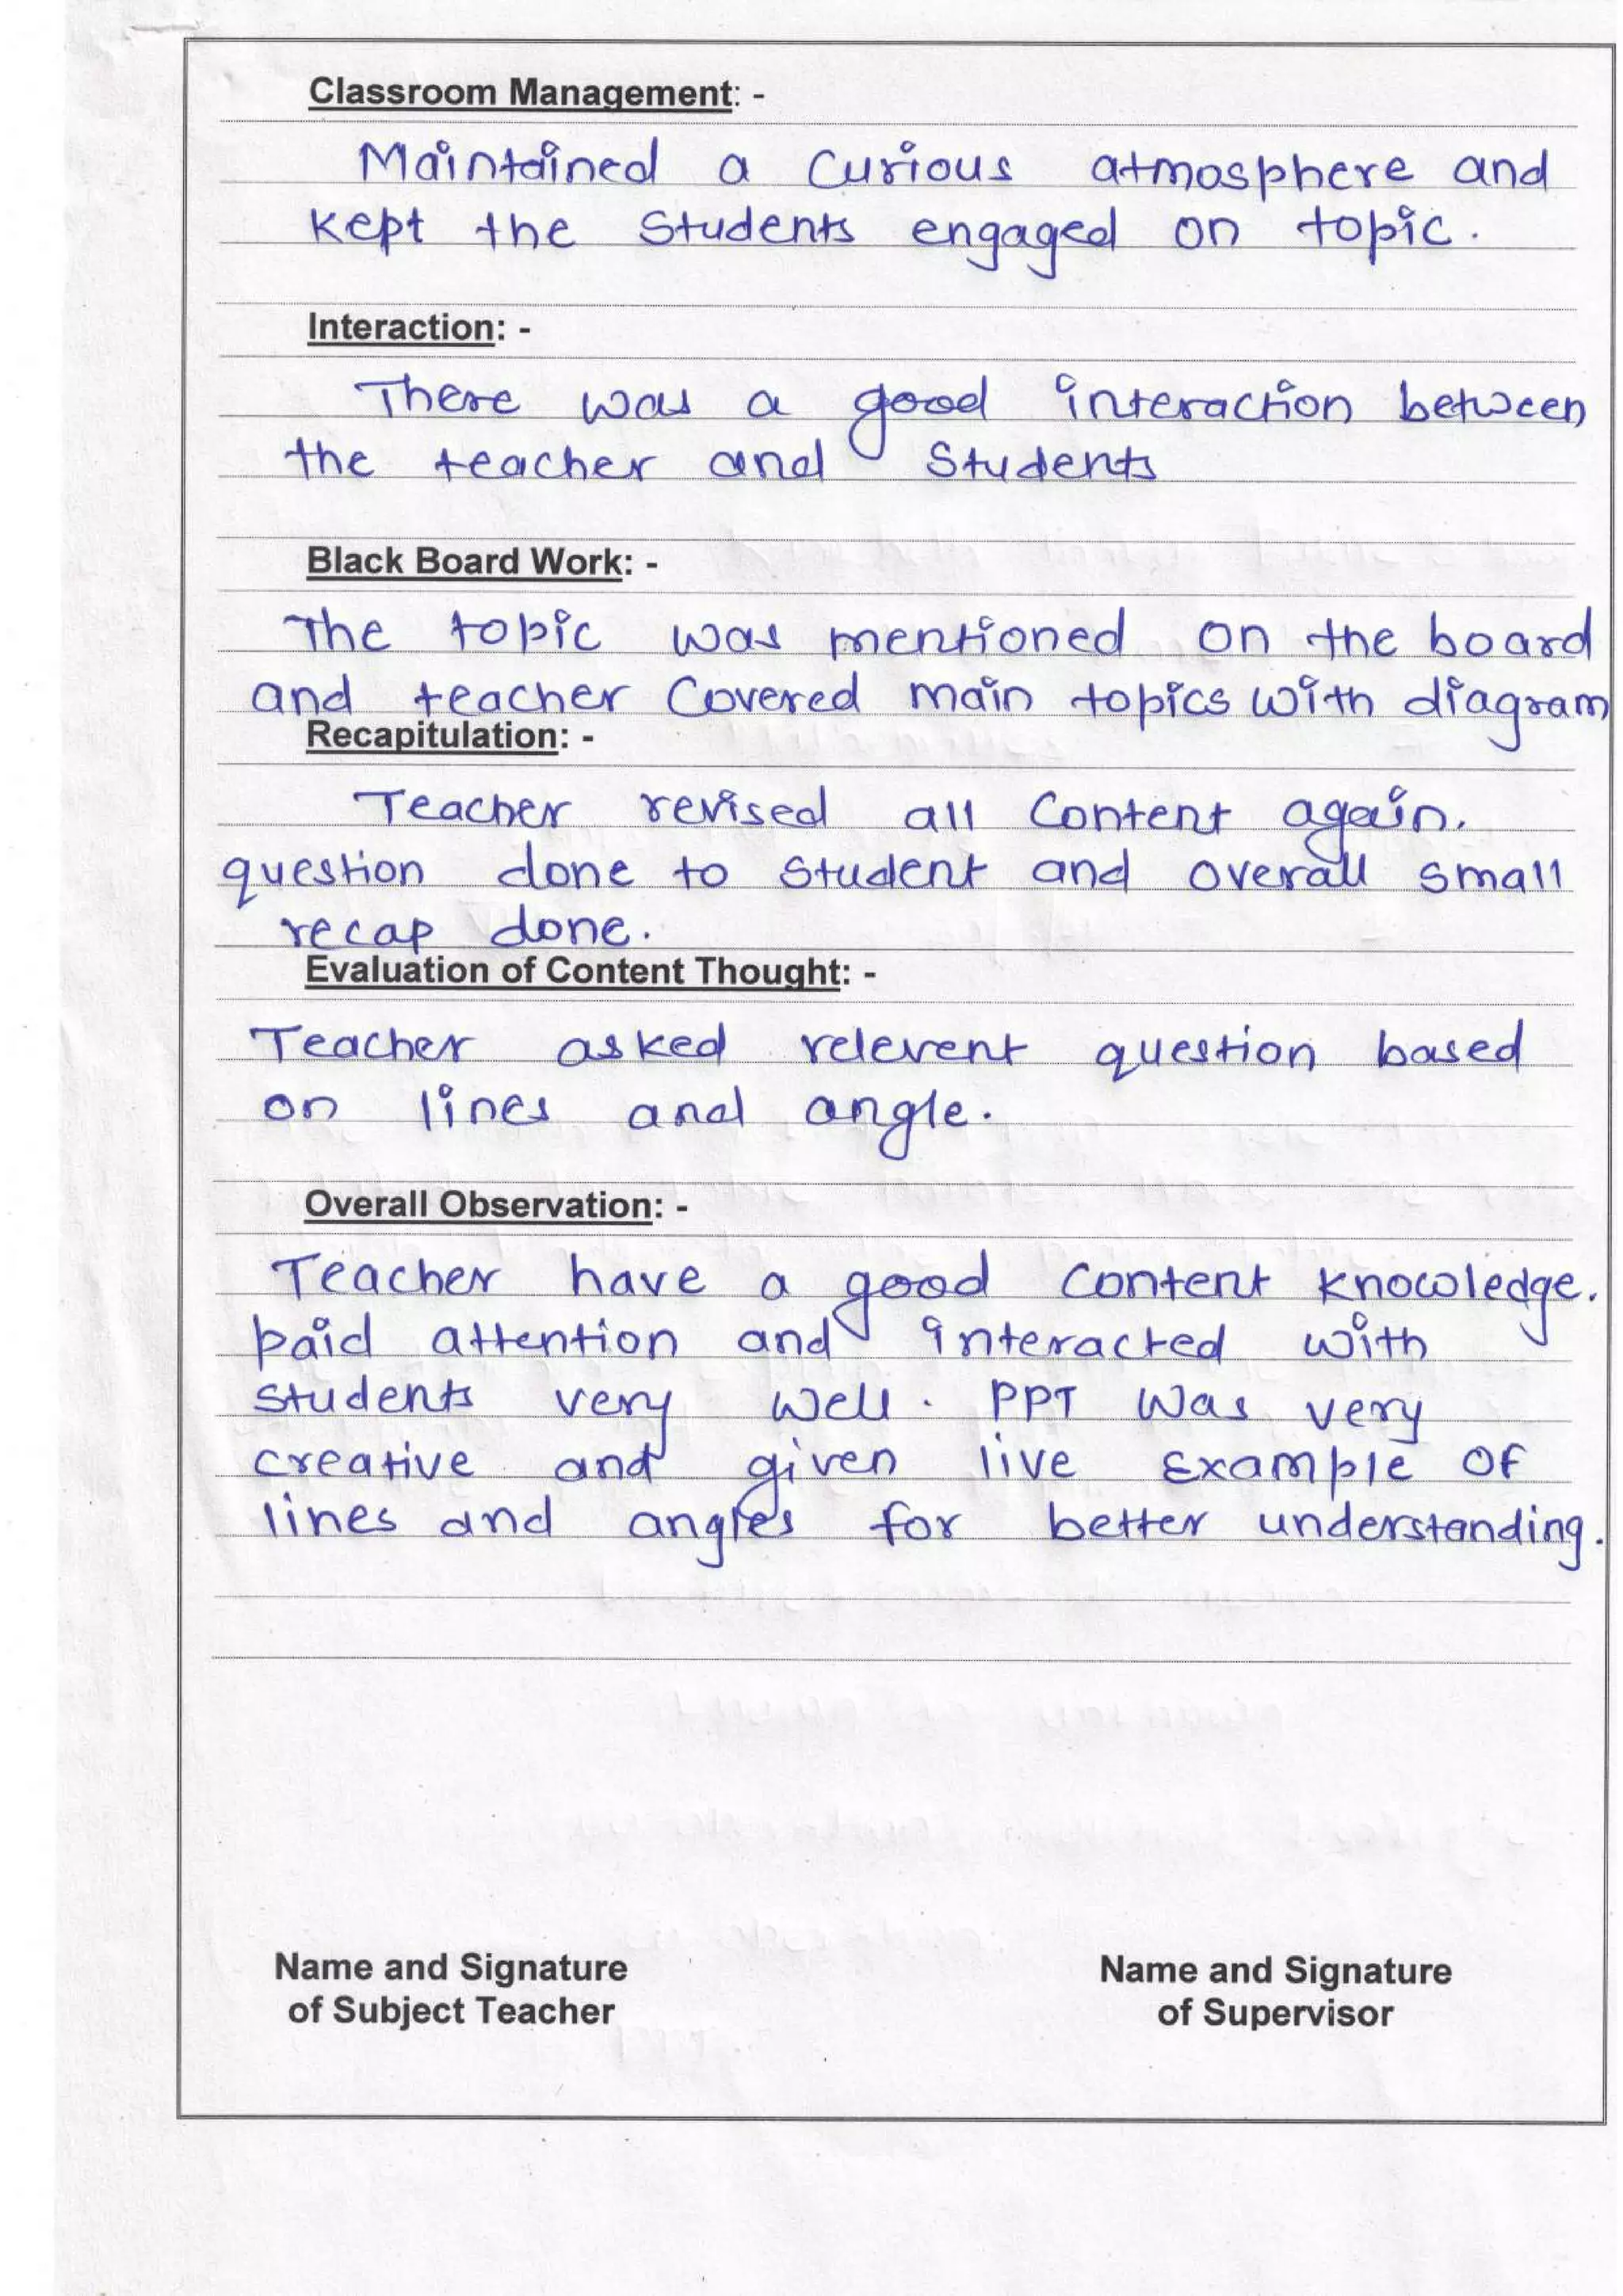 Classroom Management: -
Maintained a curious atmosphere and
kept the students engaged on topic.
Interaction: -
There was a good interaction between
the teacher and students
Black Board Work: -
The topic was mentioned on the board
and teacher covered main topics with diagram
Recapitulation: -
Teacher revised all content again.
question done to student and overall small
recap done.
Evaluation of Content Thought: -
Teacher asked relevent question based
on lines and angle.
Overall Observation: -
Teacher have a good content knowledge.
paid attention and interacted with
students very well. PPT was very
creative and given live example of
lines and angles for better understanding.
Name and Signature Name and Signature
of Subject Teacher of Supervisor